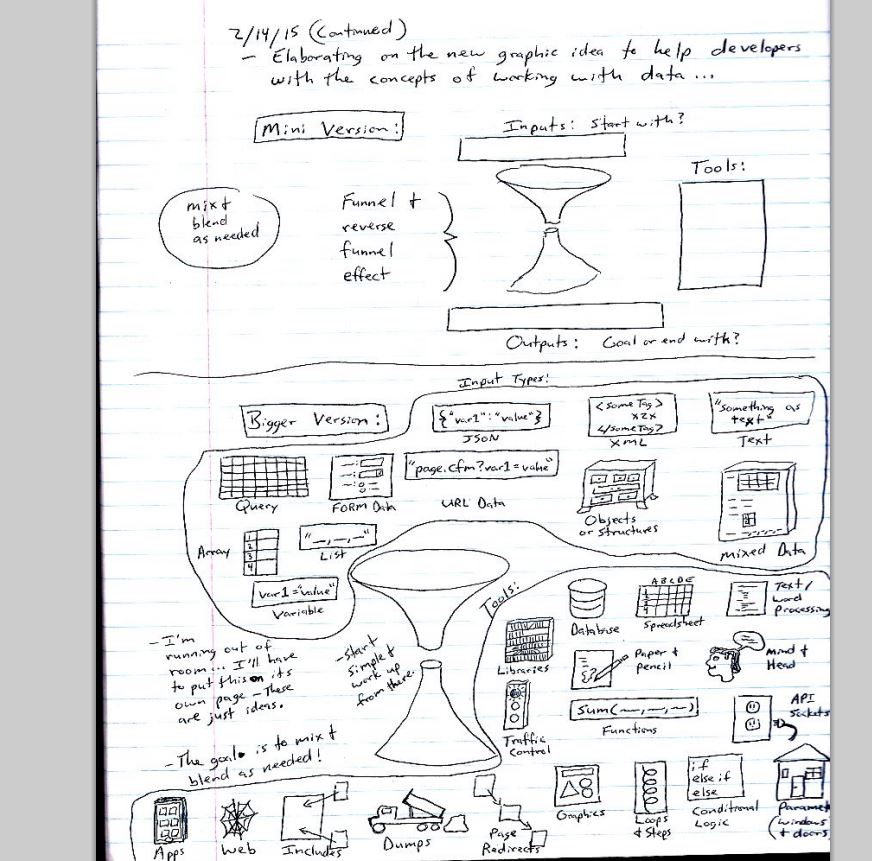 2/14/15 (Continued)
- Elaborating on the new graphic idea to help developers
with the concepts of working with data...
Mini Version:
Inputs: Start with?
Tools:
mix &
blend
as needed
Funnel &
reverse
funnel
effect
Outputs: Goal or end with?
Input Types:
Bigger Version:
{"var1":"value"}
JSON
<someTag>
xzx
</someTag>
XML
"something as
text"
Text
Query
FORM Data
"page.cfm?var1=value"
URL Data
Objects
or Structures
mixed Data
Array
1
2
3
4
"_,_,_"
List
var1="value"
Variable
Tools:
Libraries
Database
A B C D E
1
2
3
4
Spreadsheet
Text/
Word
Processing
- I'm
running out of
room... I'll have
to put this on its
own page - These
are just ideas.
- Start
simple &
work up
from there.
Paper &
pencil
Mind &
Head
Traffic
Control
sum(_,_,_)
Functions
API
Sockets
- The goal is to mix &
blend as needed!
Apps
Web
Includes
Dumps
Page
Redirects
Graphics
Loops
& Steps
if
else if
else
Conditional
Logic
Paramet
(windows
& doors